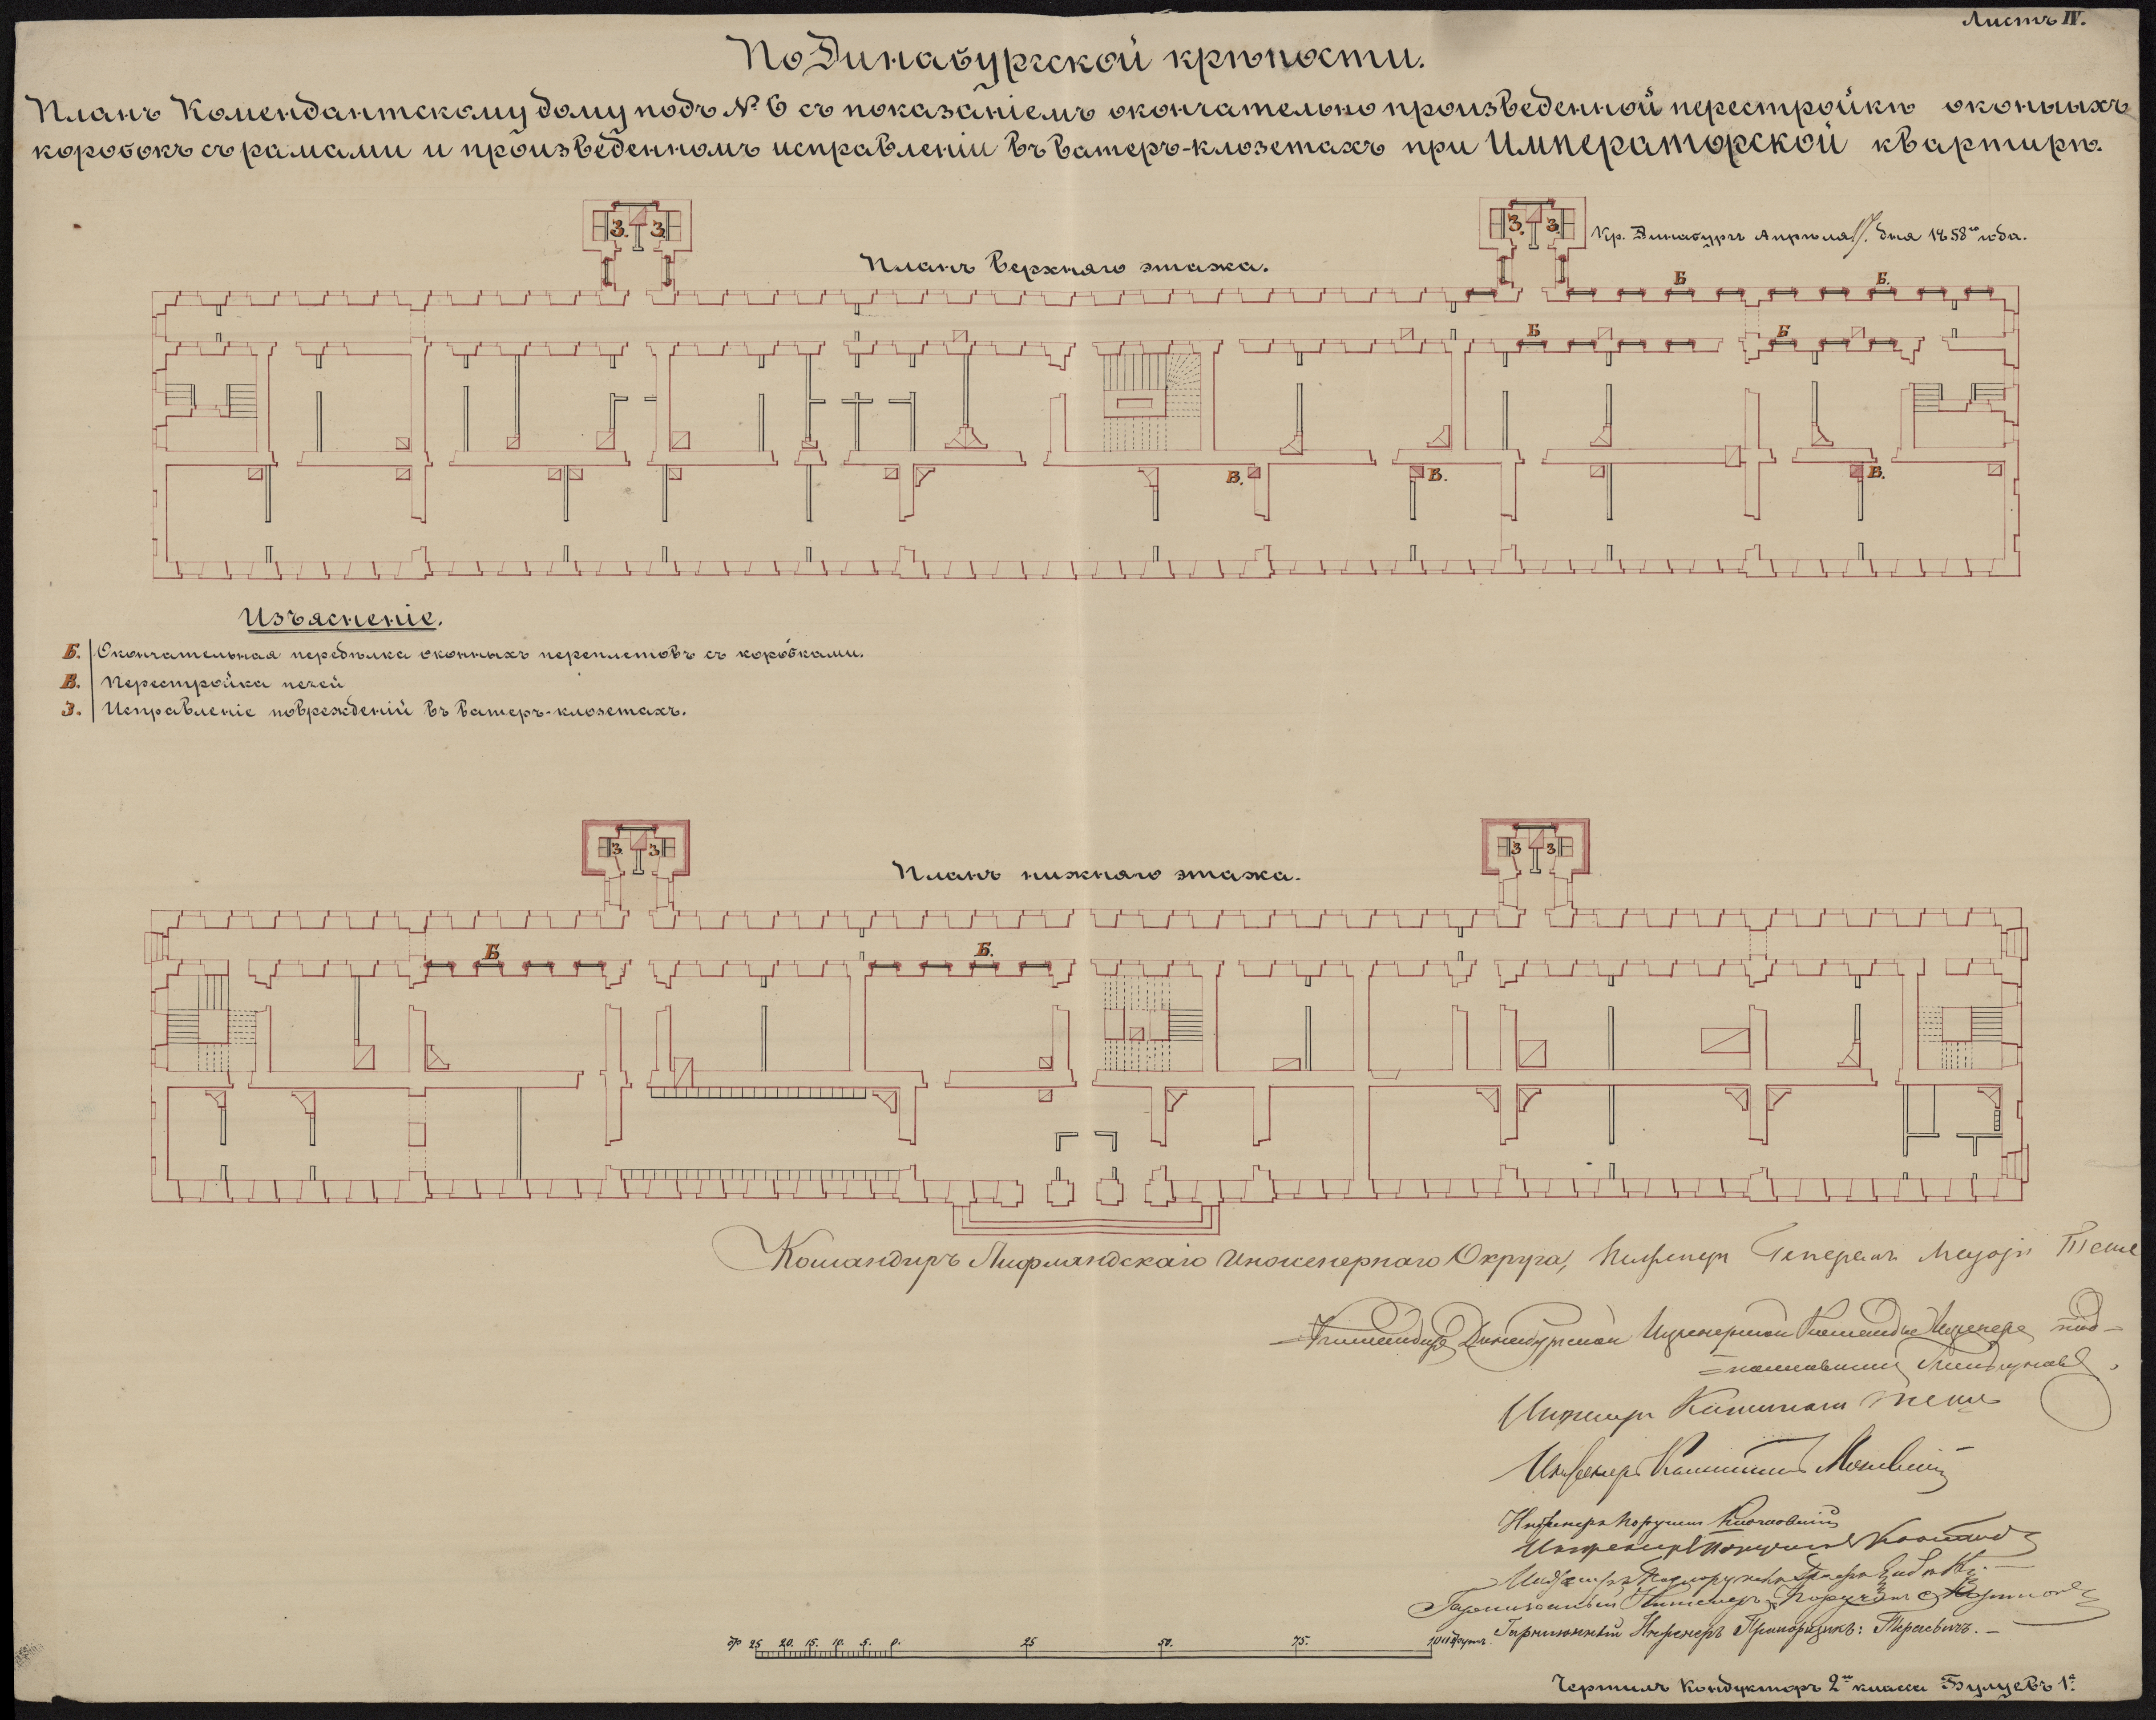 Листъ IV.
По Динабургской крѣпости.
Планъ Комендантскому дому подъ № 6 съ показаніемъ окончательно произведенной перестройки оконныхъ
коробокъ съ рамами и произведенномъ исправленіи въ ватеръ-клозетахъ при Императорской квартирѣ.
З. З.
З. З.
Кр. Динабургъ Апрѣля 17. дня 1858го года.
Планъ верхняго этажа.
Б Б.
Б Б
В. В. В.
Изъясненіе.
Б. Окончательная передѣлка оконныхъ переплетовъ съ коробками.
В. Перестройка печей
З. Исправленіе поврежденій въ ватеръ-клозетахъ.
З. З
З З
Планъ нижняго этажа.
Б Б.
Командиръ Лифляндскаго Инженернаго Округа, Инженеръ Генералъ Маіоръ
Командиръ Динабургской Инженерной Команды Инженеръ под-
=полковникъ
Инженеръ Капитанъ
Инженеръ Капитанъ
Инженеръ Поручикъ
Инженеръ Поручикъ
Инженеръ Подпоручикъ
Гарнизонный Инженеръ Поручикъ
Гарнизонный Инженеръ Прапорщикъ:
25 20. 15. 10. 5. 0. 25 50. 75. 100 футъ.
Чертилъ Кондукторъ 2го класса Булуевъ 1й